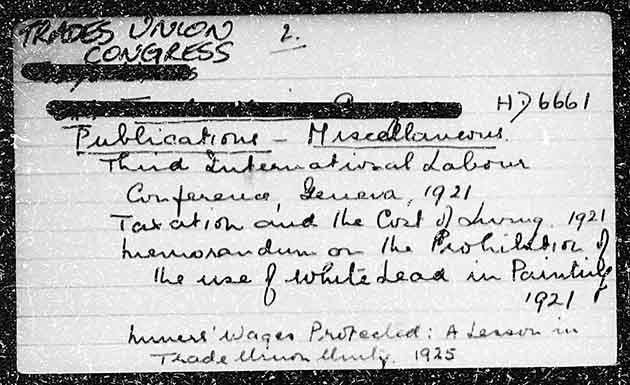 TRADES UNION 2.
CONGRESS
HD6661
Publications - Miscellaneous.
Third International Labour
Conference, Geneva, 1921
Taxation and the Cost of Living. 1921
Memorandum on the Prohibition of
the use of White Lead in Painting
1921
Miners' Wages Protected: A Lesson in
Trade Union Unity. 1925